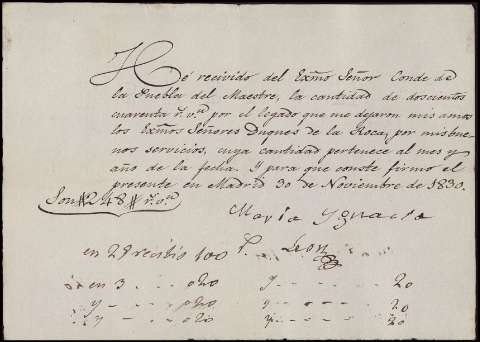 Hé recivido del Exmo Señor Conde de
la Puebla del Maestre, la cantidad de doscientos
cuarenta r.s v.n por el legado que me dejaron mis amos
los Exmos Señores Duques de la Roca, por mis bue
nos servicios, cuya cantidad pertenece al mes y
año de la fecha. Y para que conste firmo el
presente en Madrid 30 de Noviembre de 1830.
Son # 248 # r.s v.n
Maria Ygnacia
P. Leon
en 29 recibio 100
en 3 020 y 20
y 020 y 20
y 020 y 20